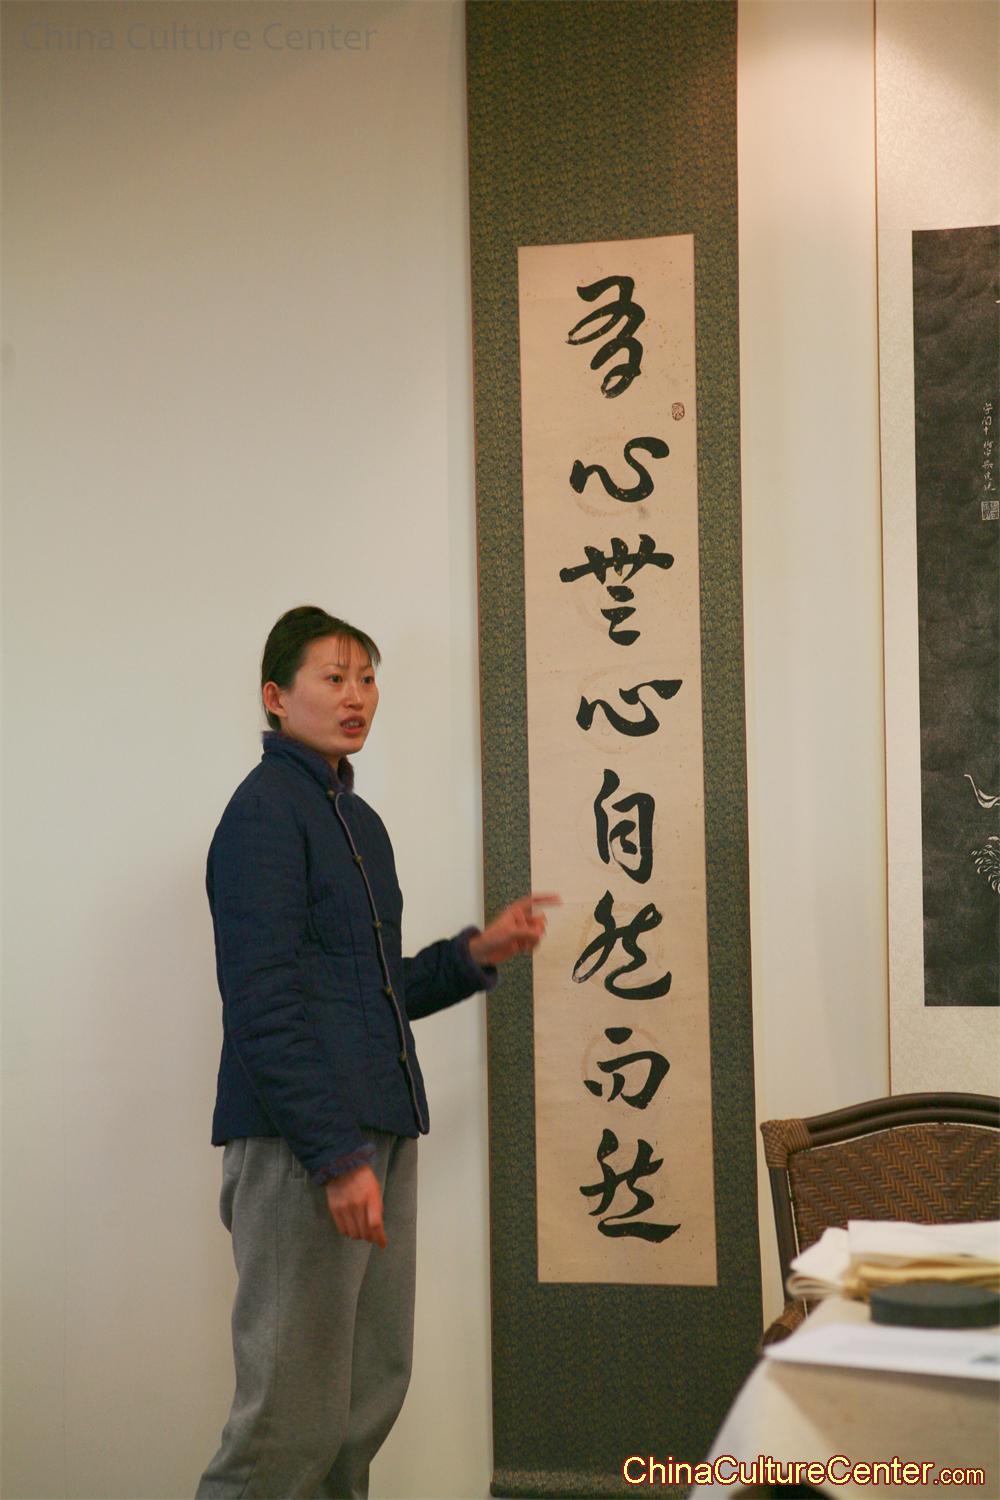 China Culture Center
吾心無心自然而然
ChinaCultureCenter.com